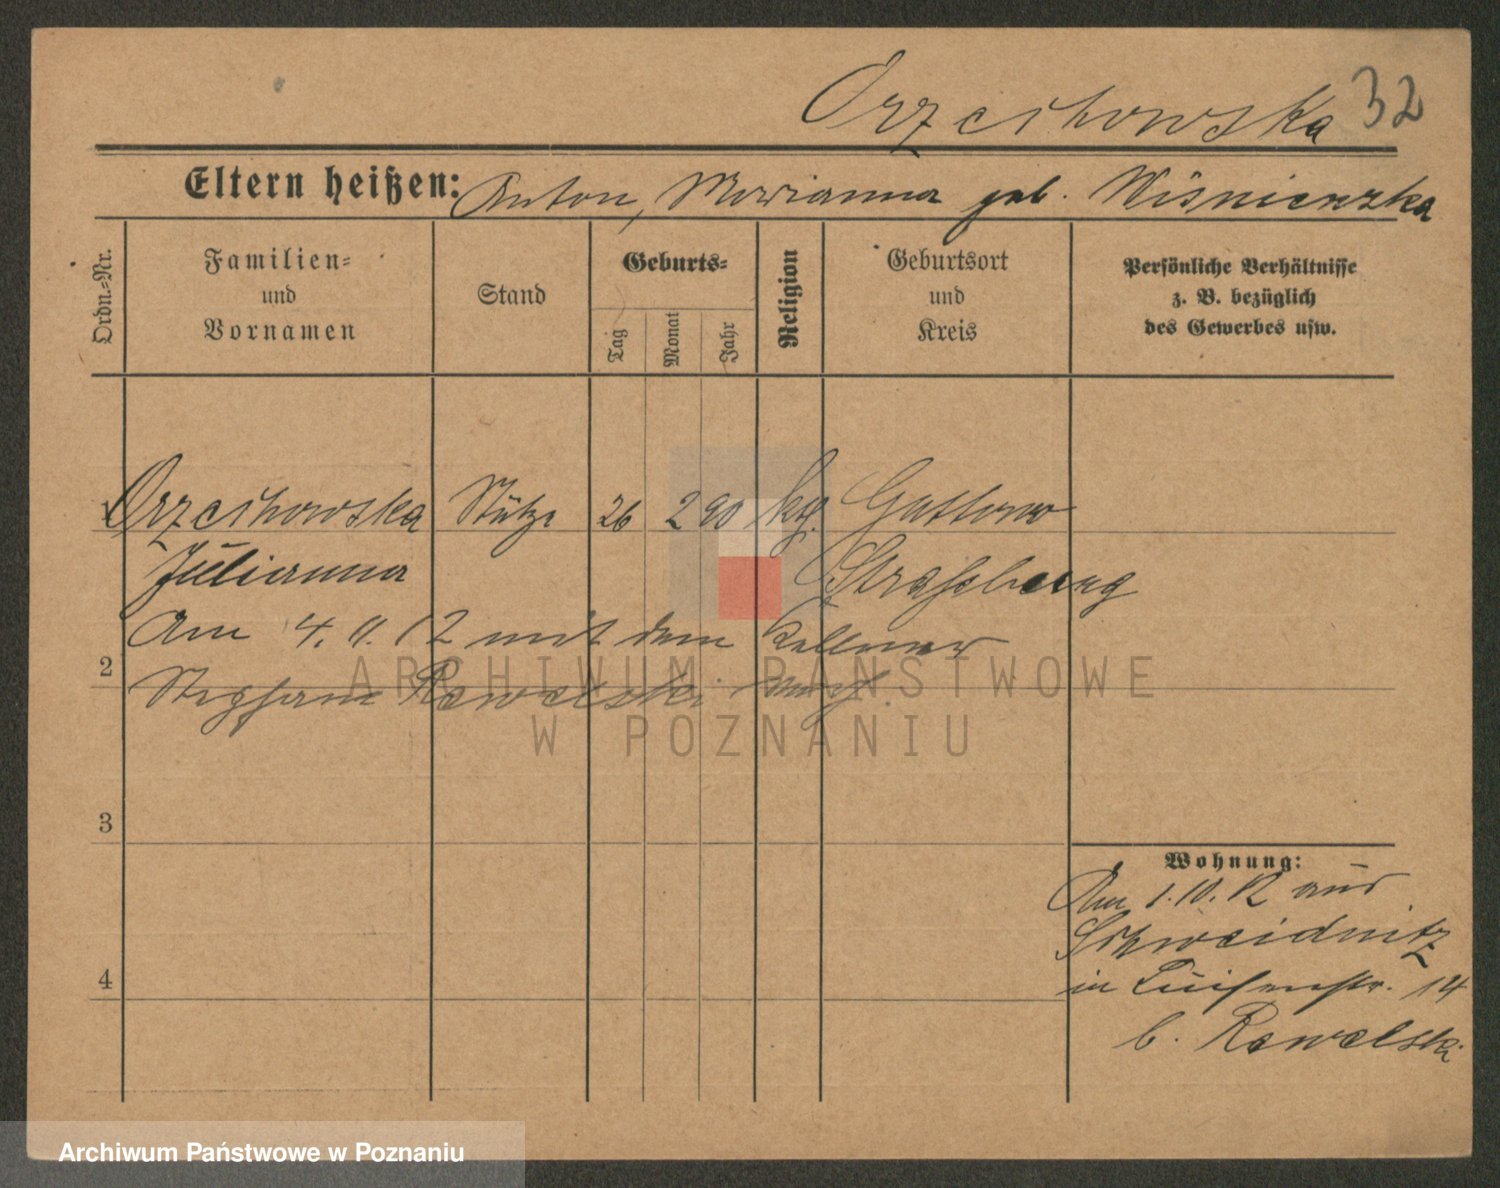 Orzechowska 32
Eltern heißen: Anton, Marianna geb. Wisniewska
Ordn.-Nr.
Familien-
und
Vornamen
Stand
Geburts-
Tag
Monat
Jahr
Religion
Geburtsort
und
Kreis
Persönliche Verhältnisse
z. B. bezüglich
des Gewerbes usw.
1 Orzechowska Stütze 26 2 90 kg. Guttowo
Julianna Strasburg
Am 4. 11. 12 mit dem Kellner
2
Stephan Rewelski
ARCHIWUM PAŃSTWOWE
W POZNANIU
3
Wohnung:
Am 1. 10. 12 aus
Schweidnitz
in Luisenstr. 14
b. Rewelski
4
Archiwum Państwowe w Poznaniu